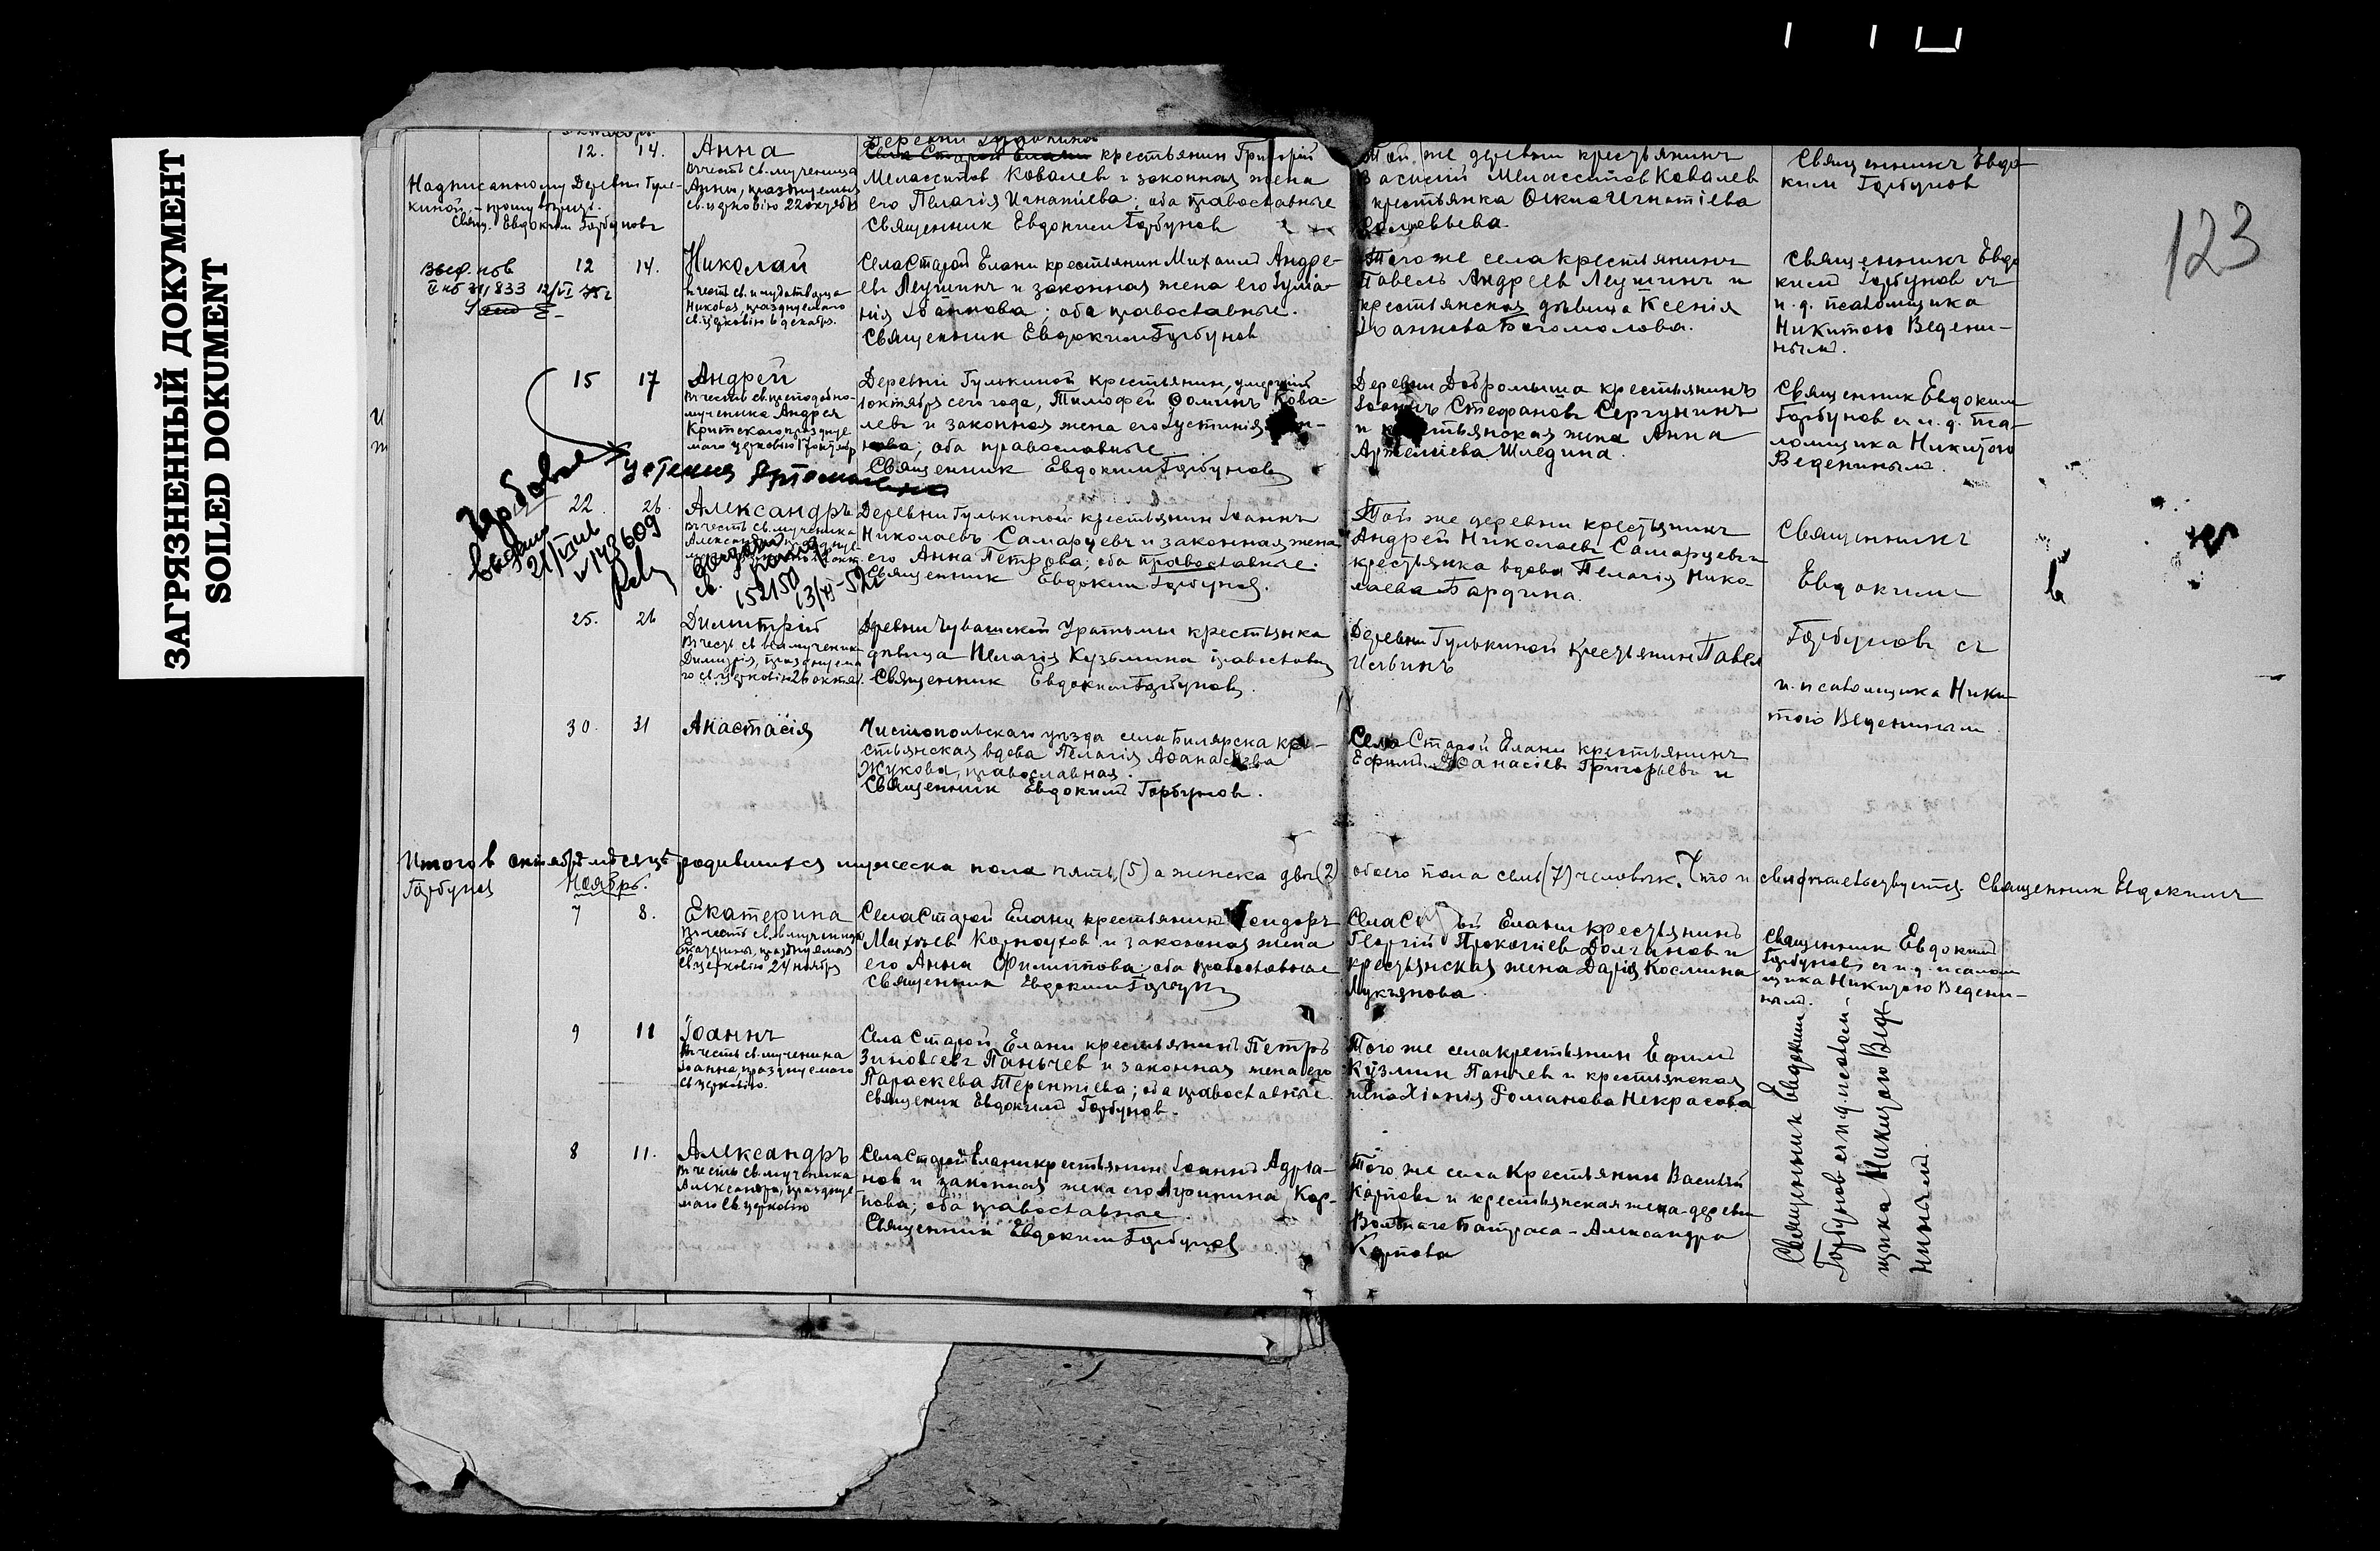 ЗАГРЯЗНЕННЫЙ ДОКУМЕНТ
SOILED DOKUMENT
123
12. 14. Анна
Въ честь св. мученицы
Анны, празднуемыя
св. церковію 22 октября
Надписанному Деревни Гуль-
киной, - прошу вѣрить.
Свящ. Евдокимъ Горбуновъ
Деревни Гулькиной
Села Старой Елани крестьянин Григорій
Ковалев и законная жена
его Пелагія Игнатіева; оба православные
Священник Евдоким Горбунов
Той же деревни крестьянинъ
Василій Ковалев
крестьянка Игнатіева
Священникъ Евдо-
ким Горбунов
12 14. Николай
св. церковію 6 декабр.
Села Старой Елани крестьянин Михаилъ Андре-
евъ Леушинъ и законная жена его
Іоаннова; оба православные.
Священник Евдоким Горбунов
Того же села крестьянинъ
Павелъ Андреев Леушинъ и
крестьянская дѣвица Ксенія
Іоаннова Богомолова.
Священникъ Евдо-
ким Горбунов съ
и. д. псаломщика
Никитою Ведени-
нымъ.
15 17 Андрей
Въ честь св. преподобно-
мученика Андрея
Критскаго празднуе-
маго церковію 17 октябр
Деревни Гулькиной крестьянин, умершій
октября сего года, Тимофей Ѳоминъ Кова-
левъ и законная жена его Іустинія
оба православные
Священник Евдоким Горбуновъ
Деревни Добромыша крестьянинъ
Іоаннъ Стефановъ Сергунинъ
и крестьянская жена Анна
Артеміева Шледина.
Священник Евдоким
Горбунов съ и. д. пса-
ломщика Никитою
Веденинымъ.
22. 26. Александръ
Въ честь св. мученика
Деревни Гулькиной крестьянин Іоаннъ
Николаевъ Самарцевъ и законная жена
его Анна Петрова; оба православные.
Священник Евдоким Горбунов.
Той же деревни крестьянинъ
Андрей Николаевъ Самарцевъ и
крестьянка вдова Пелагія Нико-
лаева Бардина.
Священникъ
Евдокимъ
Горбуновъ съ
и. псаломщика Ники-
тою Веденинымъ
21/VIII
152150
25. 26 Димитрій
Въ честь св. великомученика
Димитрія, празднуема-
го св. церковію 26 октяб.
Деревни Чувашской Уратьмы крестьянка
дѣвица Пелагія Кузьмина православная
Священник Евдоким Горбуновъ.
Деревни Гулькиной крестьянин Павел
30. 31 Анастасія
Чистопольскаго уѣзда села Билярска кре-
стьянская вдова Пелагія Аѳанасіева
Жукова, православная.
Священник Евдокимъ Горбунов.
Села Старой Елани крестьянинъ
Ефимъ Аѳанасіевъ Григорьевъ и
Итого в октябрѣ мѣсяцѣ родившихся мужеска пола пять (5) а женска двѣ (2) обоего пола семь (7) человѣкъ. Что и свидѣтельствуется. Священник Евдокимъ
Горбунов
Ноябрь.
7 8. Екатерина
Въ честь св. великомученицы
Екатерины, празднуемая
св. церковію 24 ноября
Села Старой Елани крестьянинъ Исидоръ
Карноухов и законная жена
его Анна Филиппова; оба православные
Священник Евдоким Горбунов
Села Старой Елани крестьянинъ
Георгій Прокопіев Долганов и
крестьянская жена Дарія Космина
Лукьянова.
Священник Евдоким
Горбуновъ съ и. д. псалом-
щика Никитою Ведени-
нымъ.
9 11 Іоаннъ
Въ честь св. мученика
Іоанна, празднуемаго
св. церковію.
Села Старой Елани крестьянинъ Петръ
Зиновьевъ Панычев и законная жена его
Параскева Терентіева; оба православные.
Священник Евдокимъ Горбунов.
Того же села крестьянин Ефимъ
Кузмин Панычев и крестьянская
жена Хіонія Романова Некрасова
Священник Евдоким
Горбунов съ и. д. псалом-
щика Никитою Веде-
нинымъ.
8 11. Александръ
Въ честь св. мученика
Александра, празднуе-
маго св. церковію
Села Старой Елани крестьянин Іоаннъ Адріа-
нов и законная жена его Агрипина Кар-
пова; оба православные
Священник Евдоким Горбунов
Того же села крестьянин Василій
Карповъ и крестьянская жена деревни
Вольнаго Батраса - Александра
Карпова